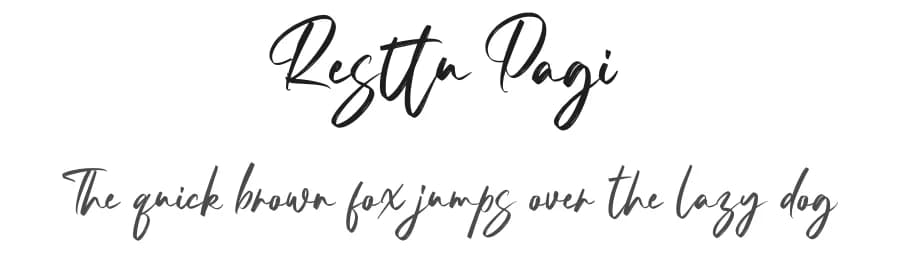 Resttu Pagi
The quick brown fox jumps over the lazy dog